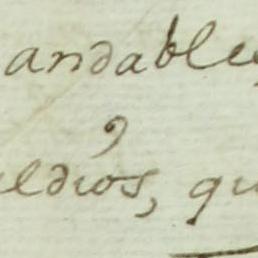 andable
eldios, qu